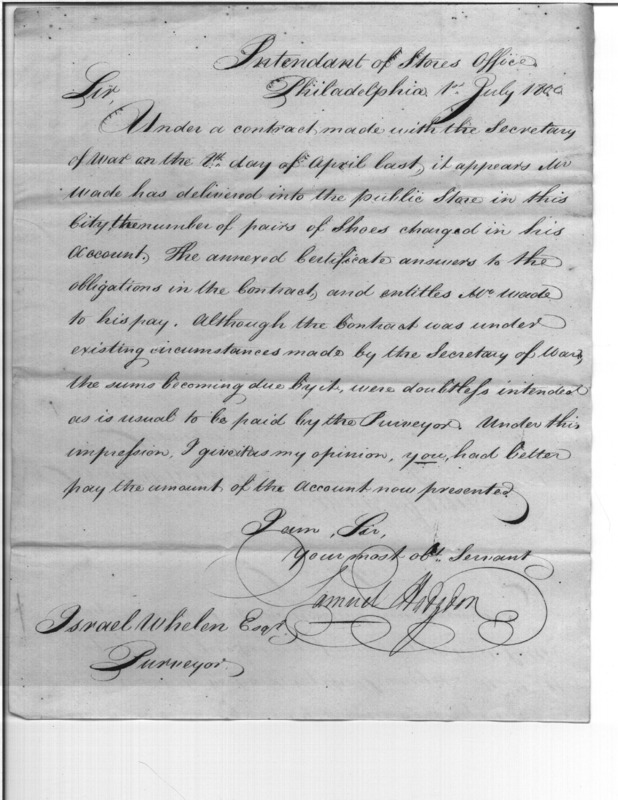 Intendant of Stores Office
Philadelphia 1st July 1800
Sir,
Under a contract, made with the Secretary
of War on the day of April last, it appears Mr
Wade has delivered into the public Store in this
City, the number of pairs of Shoes charged in his
Account. The annexed Certificate answers to the
obligations in the Contract, and entitles Mr Wade
to his pay. Although the Contract was under
existing circumstances made by the Secretary of War,
the sums becoming due by it, were doubtless intended
as is usual to be paid by the Purveyor. Under this
impression, I give it as my opinion, you, had better
pay the amount of the Account now presented
I am, Sir,
Your most obt. Servant
Samuel Hodgdon
Israel Whelen Esqr.
Purveyor